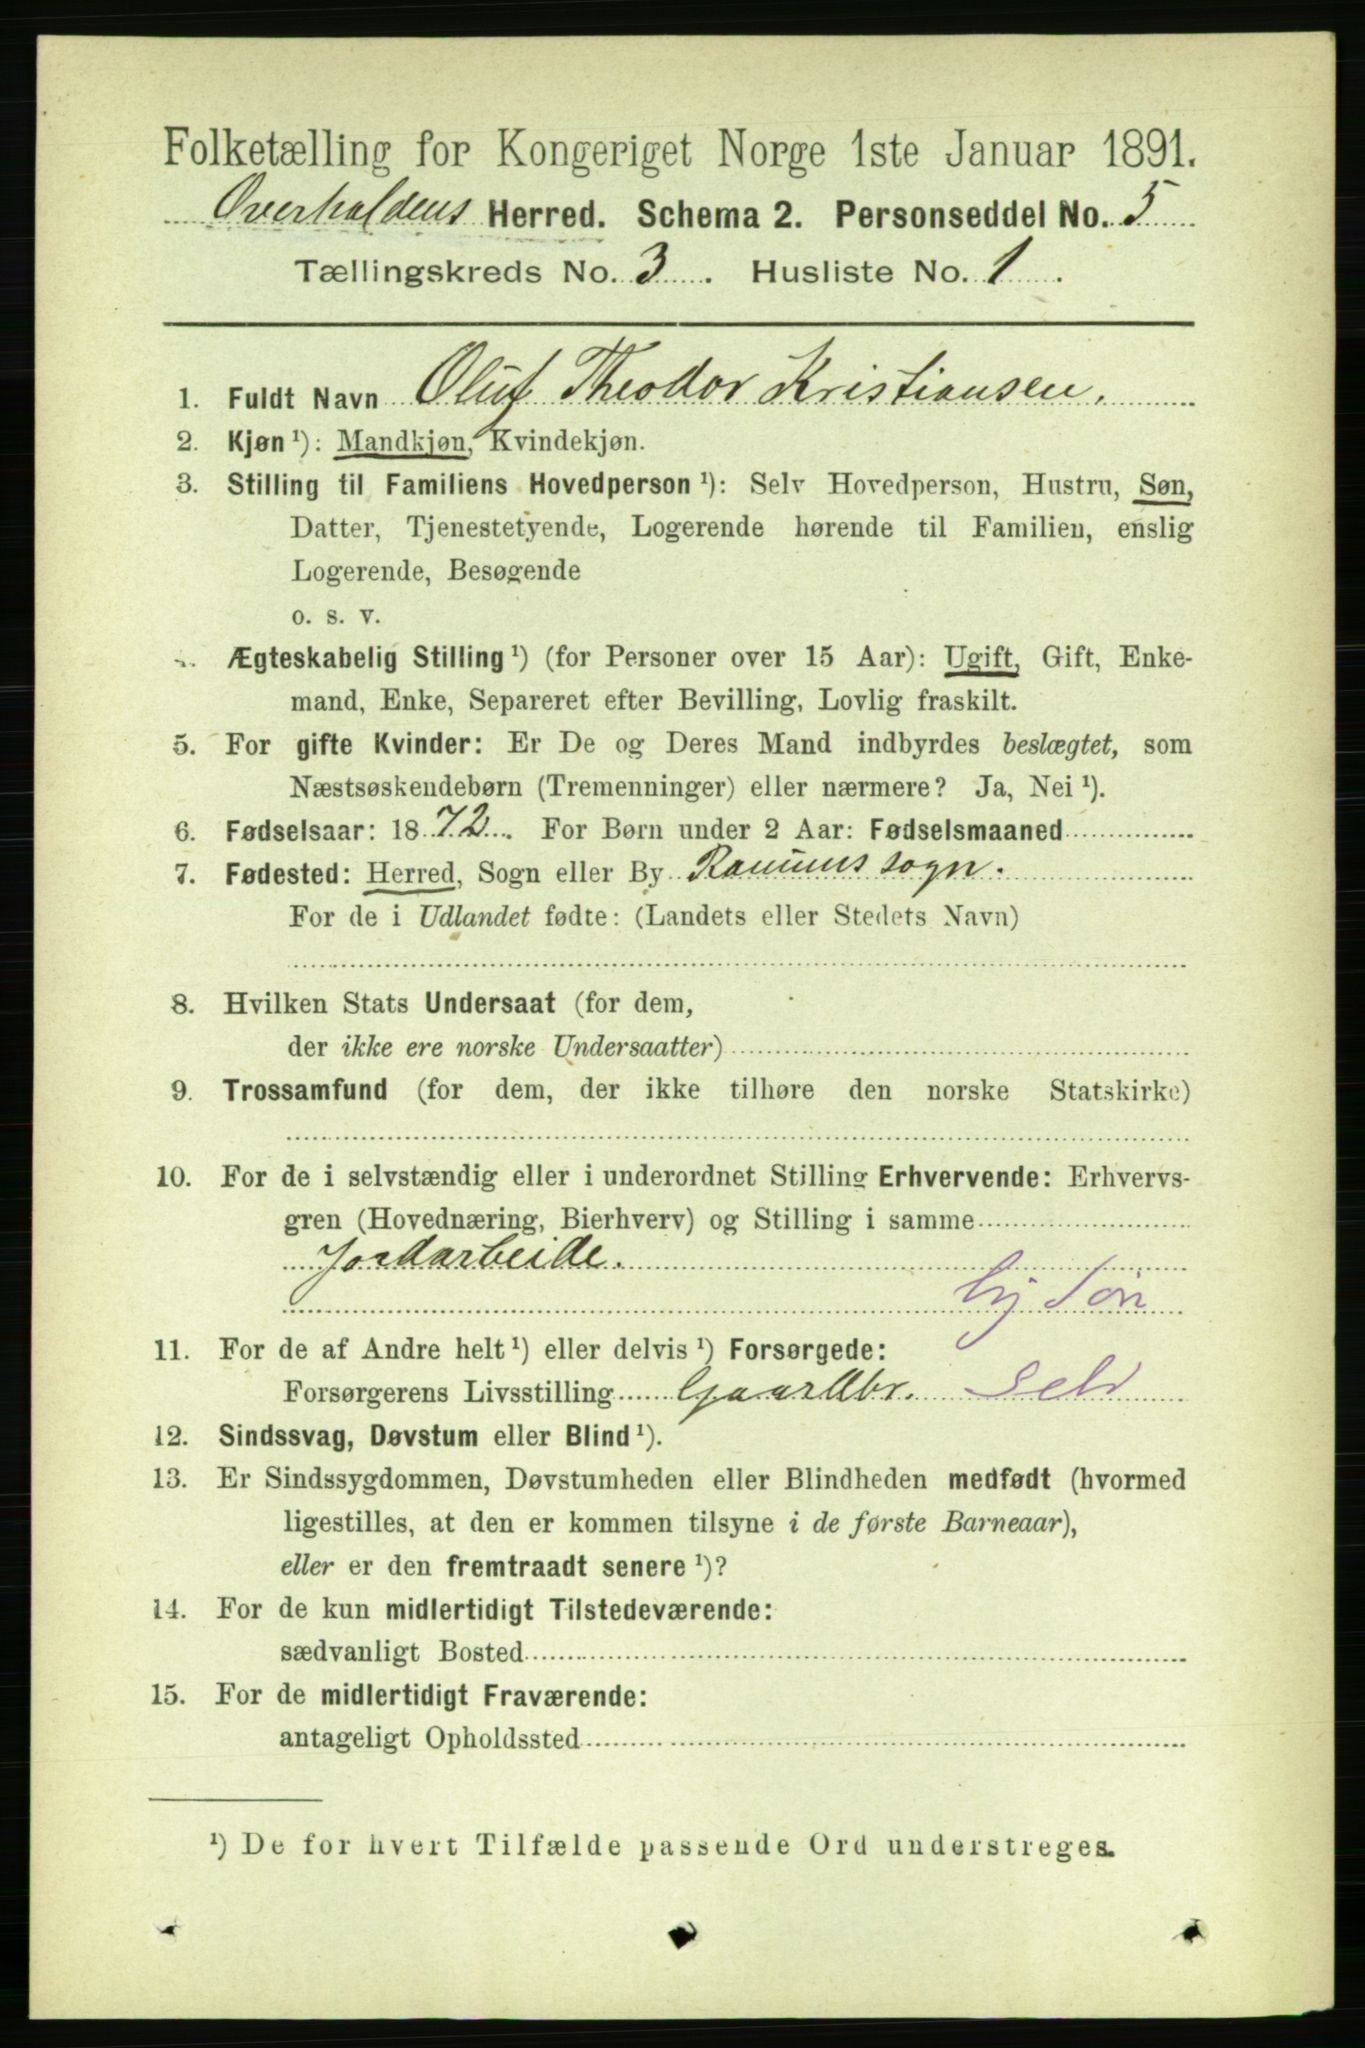 Folketælling for Kongeriget Norge 1ste Januar 1891.
Overhaldens Herred. Schema 2. Personseddel No. 5
Tællingskreds No. 3. Husliste No. 1.
1. Fuldt Navn Oluf Theodor Kristiansen.
2. Kjøn ¹): Mandkjøn, Kvindekjøn.
3. Stilling til Familiens Hovedperson ¹): Selv Hovedperson, Hustru, Søn,
Datter, Tjenestetyende, Logerende hørende til Familien, enslig
Logerende, Besøgende
o. s. v.
Ægteskabelig Stilling ¹) (for Personer over 15 Aar): Ugift, Gift, Enke-
mand, Enke, Separeret efter Bevilling, Lovlig fraskilt.
5. For gifte Kvinder: Er De og Deres Mand indbyrdes beslægtet, som
Næstsøskendebørn (Tremenninger) eller nærmere? Ja, Nei ¹).
6. Fødselsaar: 1872. For Børn under 2 Aar: Fødselsmaaned
7. Fødested: Herred, Sogn eller By Ranums sogn.
For de i Udlandet fødte: (Landets eller Stedets Navn)
8. Hvilken Stats Undersaat (for dem,
der ikke ere norske Undersaatter)
9. Trossamfund (for dem, der ikke tilhøre den norske Statskirke)
10. For de i selvstændig eller i underordnet Stilling Erhvervende: Erhvervs-
gren (Hovednæring, Bierhverv) og Stilling i samme
Jordarbeide.
Søn
11. For de af Andre helt ¹) eller delvis ¹) Forsørgede:
Forsørgerens Livsstilling Gaardbr. Selv
12. Sindssvag, Døvstum eller Blind ¹).
13. Er Sindssygdommen, Døvstumheden eller Blindheden medfødt (hvormed
ligestilles, at den er kommen tilsyne i de første Barneaar),
eller er den fremtraadt senere ¹)?
14. For de kun midlertidigt Tilstedeværende:
sædvanligt Bosted
15. For de midlertidigt Fraværende:
antageligt Opholdssted
¹) De for hvert Tilfælde passende Ord understreges.